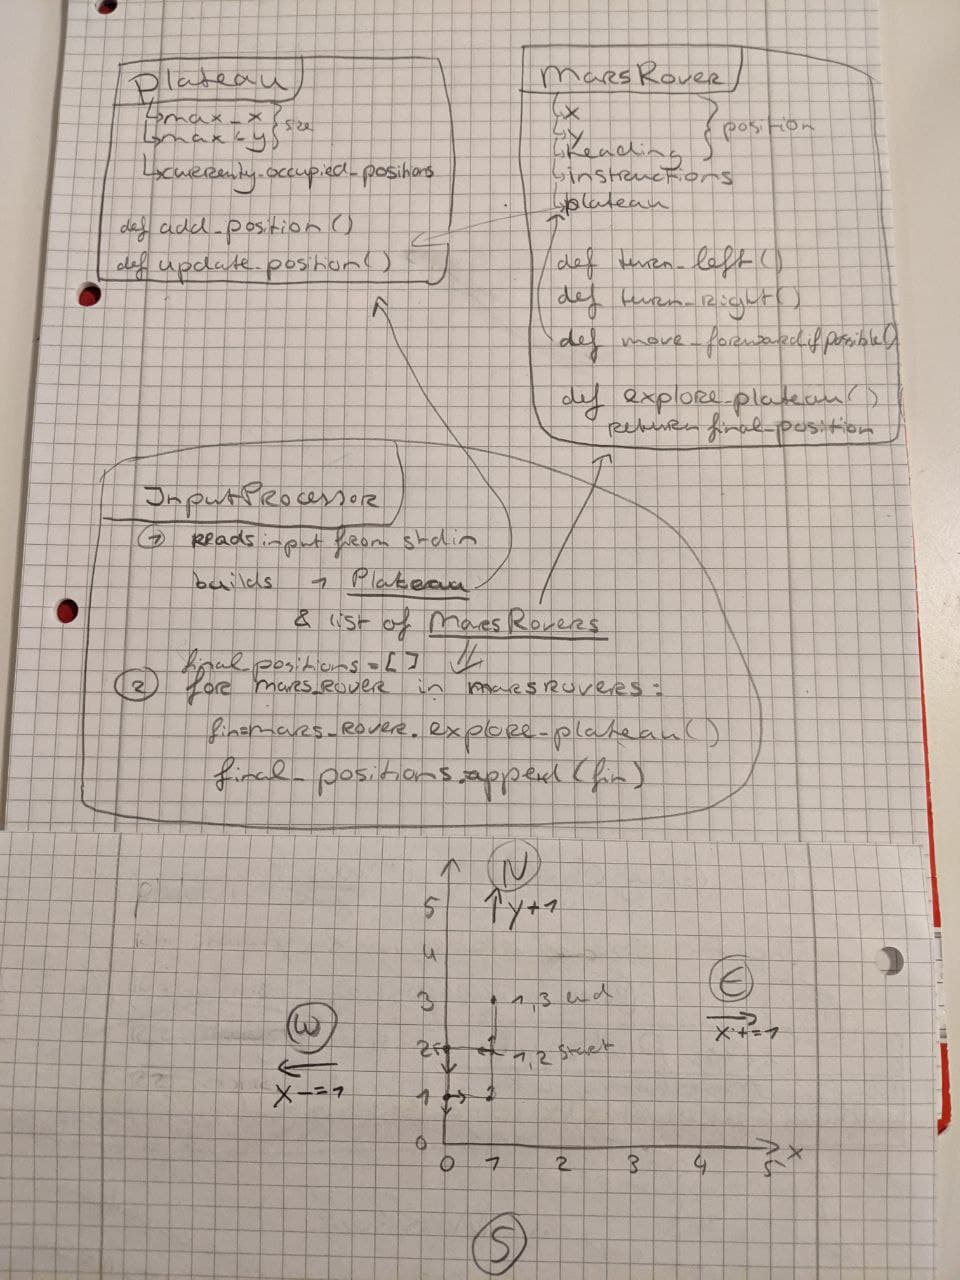 Plateau
↳max_x
↳max_y
} size
↳currently_occupied_positions
def add_position()
def update_position()
MarsRover
↳x
↳y
↳heading
} position
↳instructions
↳plateau
def turn_left()
def turn_right()
def move_forward if possible()
def explore_plateau()
return final_position
InputProcessor
① reads input from stdin
builds 1 Plateau
& list of MarsRovers
final_positions = []
② for mars_rover in marsrovers:
fin=mars_rover.explore_plateau()
final_positions.append(fin)
N
↑ y+1
5
4
3
1,3 end
E
x+=1
W
x-=1
2
1,2 start
1
0
0 1 2 3 4 5 x
S